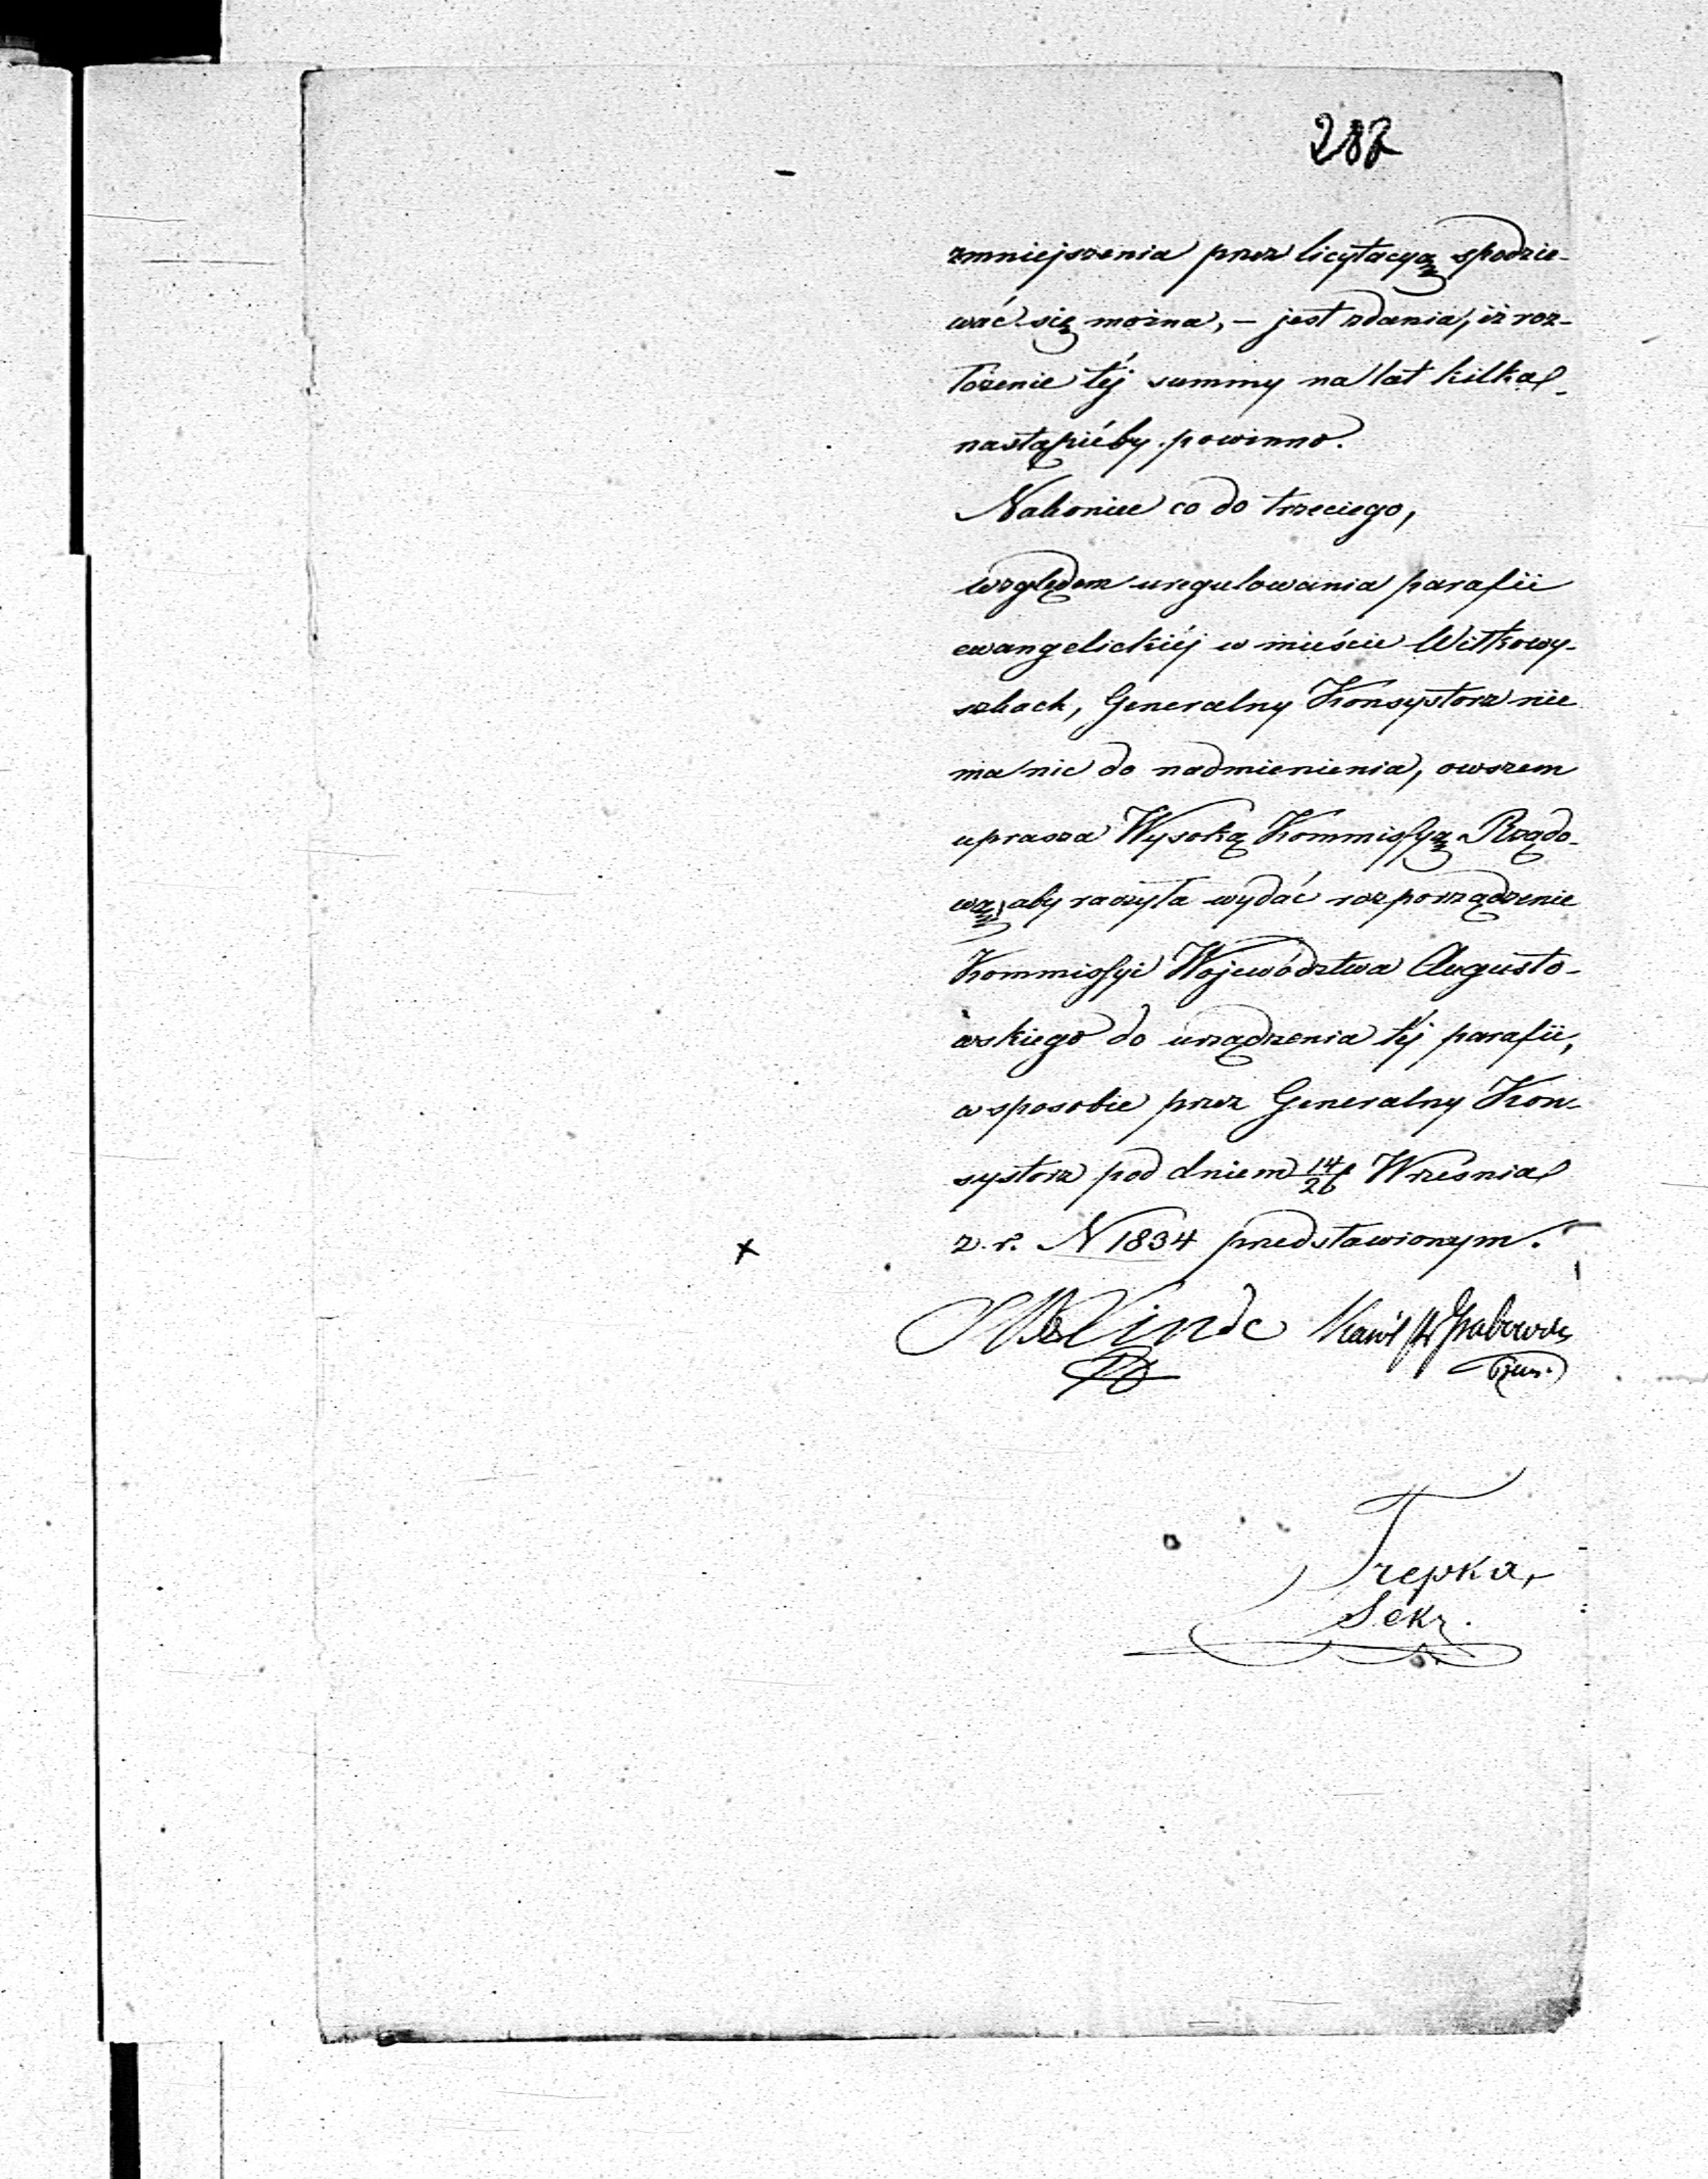 287
zmniejszenia przez licytacyą spodzie-
wać się można, – jest zdania, iż roz-
łożenie téj summy na lat kilka
nastąpićby powinno.
Nakoniec co do trzeciego,
względem uregulowania parafii
ewangelickiéj w mieście Wiłkowy-
szkach, Generalny Konsystorz nie
ma nic do nadmienienia, owszem
uprasza Wysoką Kommissyą Rządo-
wą, aby raczyła wydać rozporządzenie
Kommissyi Województwa Augusto-
wskiego do urządzenia téj parafii,
w sposobie przez Generalny Kon-
systorz pod dniem 14/26 Września
z. r. N 1834 przedstawionym.
Linde Karol Grabowski
Trepka,
Sekr.